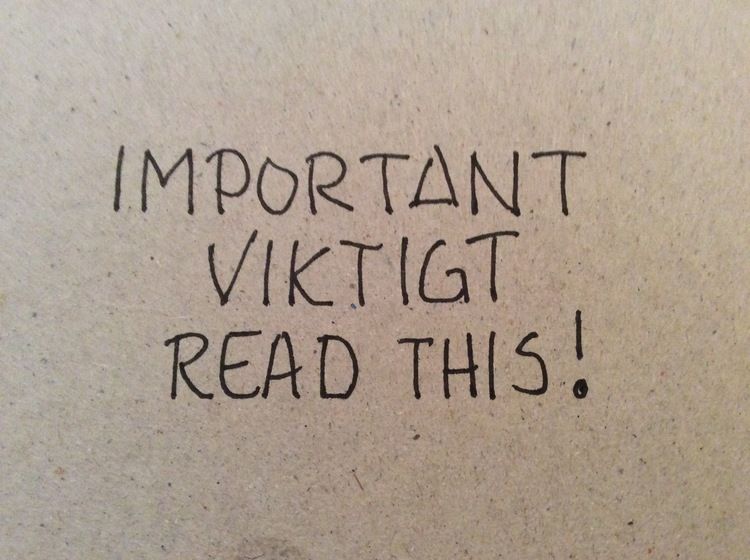 IMPORTANT
VIKTIGT
READ THIS!